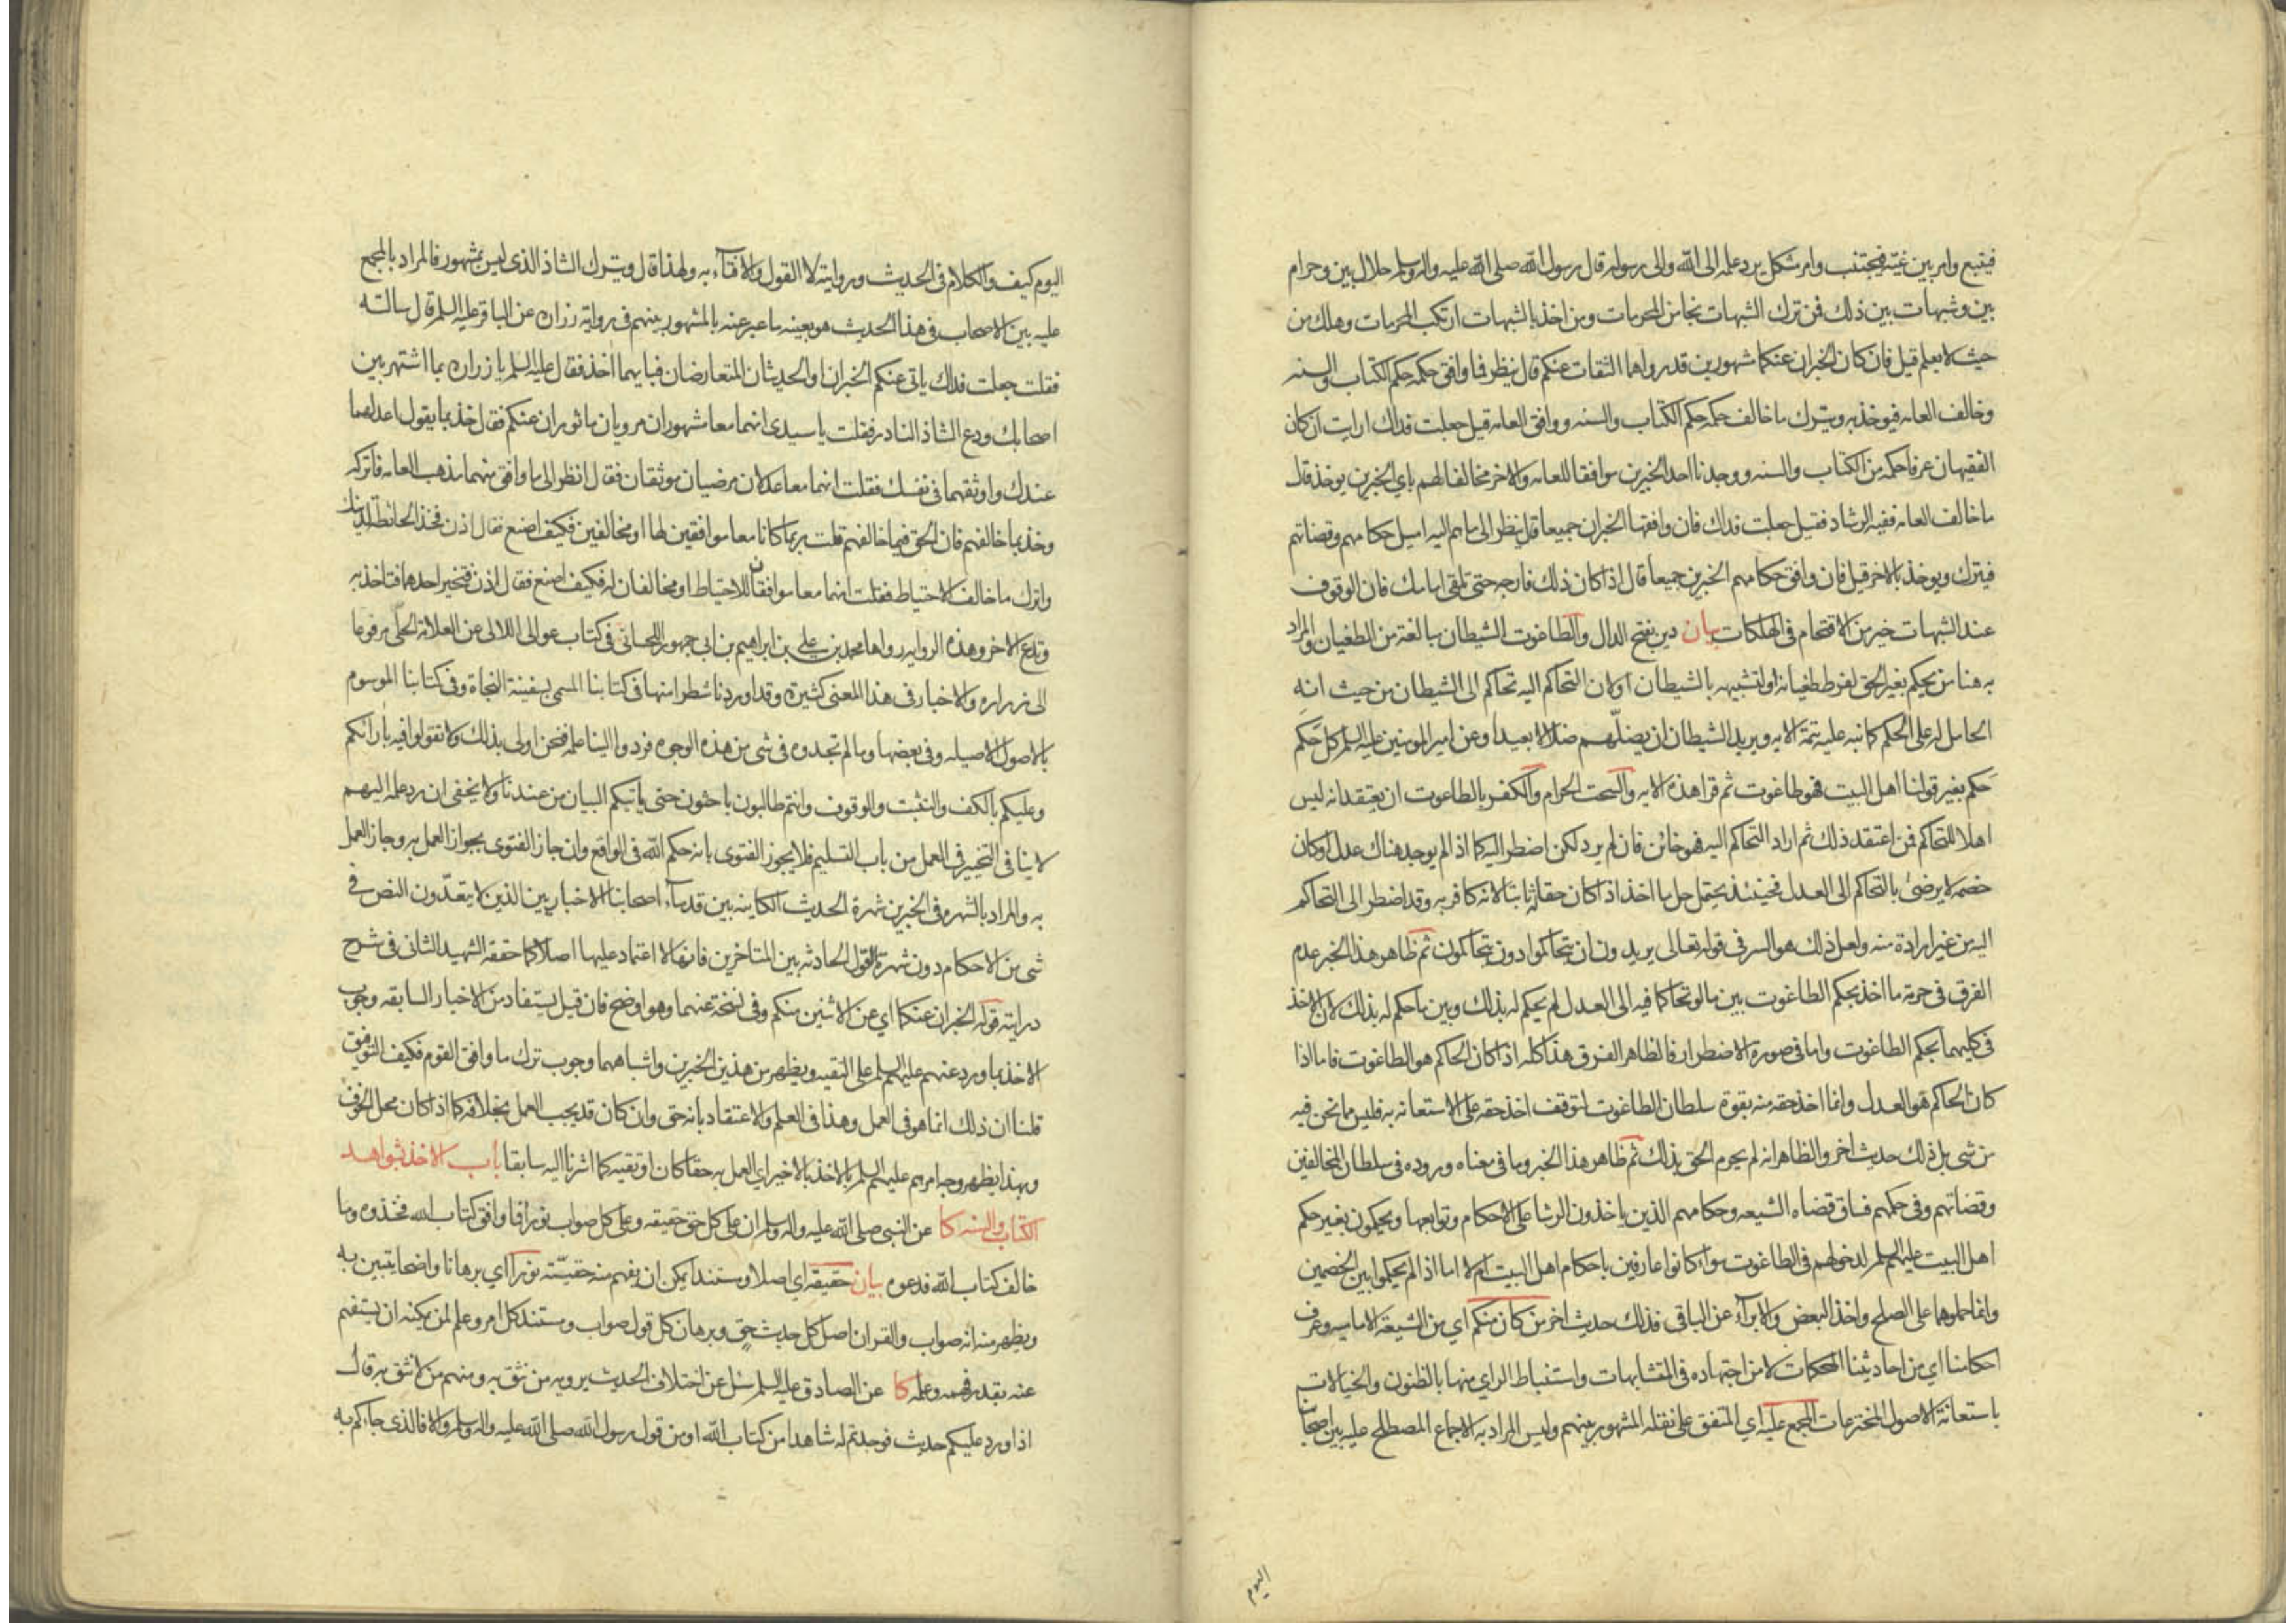 فيتبع وامر بين غيه فيجتنب وامر مشكل يرد علمه الى الله والى رسوله قال رسول الله صلى الله عليه واله وسلم حلال بين وحرام
بين وشبهات بين ذلك فمن ترك الشبهات نجا من المحرمات ومن اخذ بالشبهات ارتكب المحرمات وهلك من
حيث لا يعلم قيل فان كان الخبران عنكما مشهورين قد رواهما الثقات عنكم قال ينظر فما وافق حكمه حكم الكتاب والسنه
وخالف العامه فيوخذ به ويترك ما خالف حكمه حكم الكتاب والسنه ووافق العامه قيل جعلت فداك ارايت ان كان
الفقيهان عرفا حكمه من الكتاب والسنه ووجدنا احد الخبرين موافقا للعامه والاخر مخالفا لهم باي الخبرين يوخذ قال
ما خالف العامه ففيه الرشاد فقيل جعلت فداك فان وافقها الخبران جميعا قال ينظر الى ما هم اليه اميل حكامهم وقضاتهم
فيترك ويوخذ بالاخر قيل فان وافق حكامهم الخبرين جميعا قال اذا كان ذلك فارجه حتى تلقى امامك فان الوقوف
عند الشبهات خير من الاقتحام في الهلكات بيان دين بفتح الدال والطاغوت الشيطان مبالغة من الطغيان والمراد
به هنا من يحكم بغير الحق لفرط طغيانه او لتشبيهه بالشيطان او لان التحاكم اليه تحاكم الى الشيطان من حيث انه
الحامل له على الحكم كما نبه عليه تتمة الايه ويريد الشيطان ان يضلّهم ضلالا بعيدا وعن امير المومنين عليه السلم كل حَكم
حَكم بغير قولنا اهل البيت فهو طاغوت ثم قرا هذه الايه والسحت الحرام والكفر بالطاغوت ان يعتقد انه ليس
اهلا للتحاكم فمن اعتقد ذلك ثم اراد التحاكم اليه فهو خائن فان لم يرد لكن اضطر اليه كما اذا لم يوجد هناك عدل او كان
خصمه لا يرضى بالتحاكم الى العدل فحينئذ يحتمل حل ما اخذ اذا كان حقا له ثابتا لانه كافر به وقد اضطر الى التحاكم
اليه من غير ارادة منه ولعل ذلك هو السر في قوله تعالى يريدون ان يتحاكموا دون يتحاكمون ثم ظاهر هذا الخبر عدم
الفرق في حرمة ما اخذ بحكم الطاغوت بين ما لو تحاكما فيه الى العدل لم يحكم له بذلك وبين ما حكم له بذلك لان الاخذ
في كليهما بحكم الطاغوت واما في صورة الاضطرار فالظاهر الفرق هذا كله اذا كان الحاكم هو الطاغوت فاما اذا
كان الحاكم هو العدل وانما اخذ حقه منه بقوة سلطان الطاغوت لتوقف اخذ حقه على الاستعانه به فليس مما نحن فيه
من شي بل ذلك حديث اخر والظاهر انه لم يحرم الحق بذلك ثم ظاهر هذا الخبر وما في معناه وروده في سلطان المخالفين
وقضاتهم وفي حكمهم فساق قضاه الشيعه وحكامهم الذين ياخذون الرشا على الاحكام وتوابعها ويحكمون بغير حكم
اهل البيت عليهم السلم لدخولهم في الطاغوت سواء كانوا عارفين باحكام اهل البيت ام لا اما اذا لم يحكموا بين الخصمين
وانما حملوهما على الصلح واخذ البعض والابرآء عن الباقي فذلك حديث اخر من كان منكم اي من الشيعة الاماميه وعرف
احكامنا اي من احاديثنا المحكمات لا من اجتهاده في المتشابهات واستنباط الراي منها بالظنون والخيالات
باستعانة الاصول المخترعات المجمع عليه اي المتفق على نقله المشهور بينهم وليس المراد به الاجماع المصطلح عليه بين اصحابنا
اليوم
اليوم كيف والكلام في الحديث وروايته لا القول والافتآء به ولهذا قال ويترك الشاذ الذي ليس بمشهور فالمراد بالمجمع
عليه بين الاصحاب في هذا الحديث هو بعينه ما عبر عنه بالمشهور بينهم في رواية زراره عن الباقر عليه السلم قال سالته
فقلت جعلت فداك ياتي عنكم الخبران او الحديثان المتعارضان فبايهما اخذ فقال عليه السلم يا زراره بما اشتهر بين
اصحابك ودع الشاذ النادر فقلت يا سيدي انهما معا مشهوران مرويان ماثوران عنكم فقال خذ بما يقول اعدلهما
عندك واوثقهما في نفسك فقلت انهما معا عدلان مرضيان موثقان فقال انظر الى ما وافق منهما مذهب العامه فاتركه
وخذ بما خالفهم فان الحق فيما خالفهم قلت ربما كانا معا موافقين لها او مخالفين فكيف اصنع فقال اذن فخذ الحائطة لدينك
واترك ما خالف الاحتياط فقلت انهما معا موافقان للاحتياط او مخالفان له فكيف اصنع فقال اذن فتخير احدهما فتاخذ به
وتدع الاخر وهذه الروايه رواها محمد بن علي بن ابراهيم بن ابي جمهور اللحسائي في كتاب عوالي اللالي عن العلامة الحلي مرفوعا
الى زراره والاخبار في هذا المعنى كثيرة وقد اوردنا شطرا منها في كتابنا المسمى بسفينة النجاة وفي كتابنا الموسوم
بالاصول الاصيله وفي بعضها وما لم تجدوه في شي من هذه الوجوه فردوا الينا علمه فنحن اولى بذلك ولا تقولوا فيه بارائكم
وعليكم بالكف والتثبت والوقوف وانتم طالبون باحثون حتى ياتيكم البيان من عندنا ولا يخفى ان رد علمه اليهم
لا ينافي التخيير في العمل من باب التسليم فلا يجوز الفتوى بانه حكم الله في الواقع وان جاز الفتوى بجواز العمل به وجاز العمل
به والمراد بالشهره في الخبرين شهرة الحديث الكاينه بين قدمآء اصحابنا الاخباريين الذين لا يتعدّون النص في
شي من الاحكام دون شهرة القول الحادثه بين المتاخرين فانها لا اعتماد عليها اصلا كما حققه الشهيد الثاني في شرح
درايته قوله الخبران عنكما اي عن الاثنين منكم وفي نسخة عنهما وهو اوضح فان قيل يستفاد من الاخبار السابقه وجوب
الاخذ بما ورد عنهم عليهم السلم على التقيه ويظهر من هذين الخبرين واشباههما وجوب ترك ما وافق القوم فكيف التوفيق
قلنا ان ذلك انما هو في العمل وهذا في العلم والاعتقاد بانه حق وان كان قد يجب العمل بخلافه كما اذا كان محل الخوف
وبهذا يظهر وجه امرهم عليهم السلم بالاخذ بالاخير اي العمل به حقا كان او تقيه كما اشرنا اليه سابقا باب الاخذ بشواهد
الكتاب والسنه كا عن النبي صلى الله عليه واله وسلم ان على كل حق حقيقه وعلى كل صواب نورا فما وافق كتاب الله فخذوه وما
خالف كتاب الله فدعوه بيان حقيقه اي اصلا ومستندا يمكن ان يفهم منه حقيّته نورا اي برهانا واضحا يتبين به
ويظهر منه انه صواب والقران اصل كل حديث حق وبرهان كل قول صواب ومستند كل امر وعلم لمن يمكنه ان يستفهم
عنه بقدر فهمه وعلمه كا عن الصادق عليه السلم سئل عن اختلاف الحديث يرويه من نثق به ومنهم من لا نثق به قال
اذا ورد عليكم حديث فوجدتم له شاهدا من كتاب الله او من قول رسول الله صلى الله عليه واله وسلم والا فالذي جاءكم به